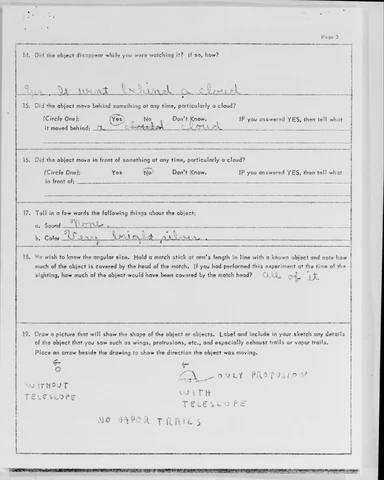 Page 3
14. Did the object disappear while you were watching it? If so, how?
Yes. It went behind a cloud
15. Did the object move behind something at any time, particularly a cloud?
(Circle One): Yes No Don't Know. IF you answered YES, then tell what
it moved behind: a cloud
16. Did the object move in front of something at any time, particularly a cloud?
(Circle One): Yes No Don't Know. IF you answered YES, then tell what
in front of:
17. Tell in a few words the following things about the object:
a. Sound None.
b. Color Very bright silver.
18. We wish to know the angular size. Hold a match stick at arm's length in line with a known object and note how
much of the object is covered by the head of the match. If you had performed this experiment at the time of the
sighting, how much of the object would have been covered by the match head? All of it
19. Draw a picture that will show the shape of the object or objects. Label and include in your sketch any details
of the object that you saw such as wings, protrusions, etc., and especially exhaust trails or vapor trails.
Place an arrow beside the drawing to show the direction the object was moving.
WITHOUT
TELESCOPE
ONLY PROPUSION
WITH
TELESCOPE
NO VAPOR TRAILS